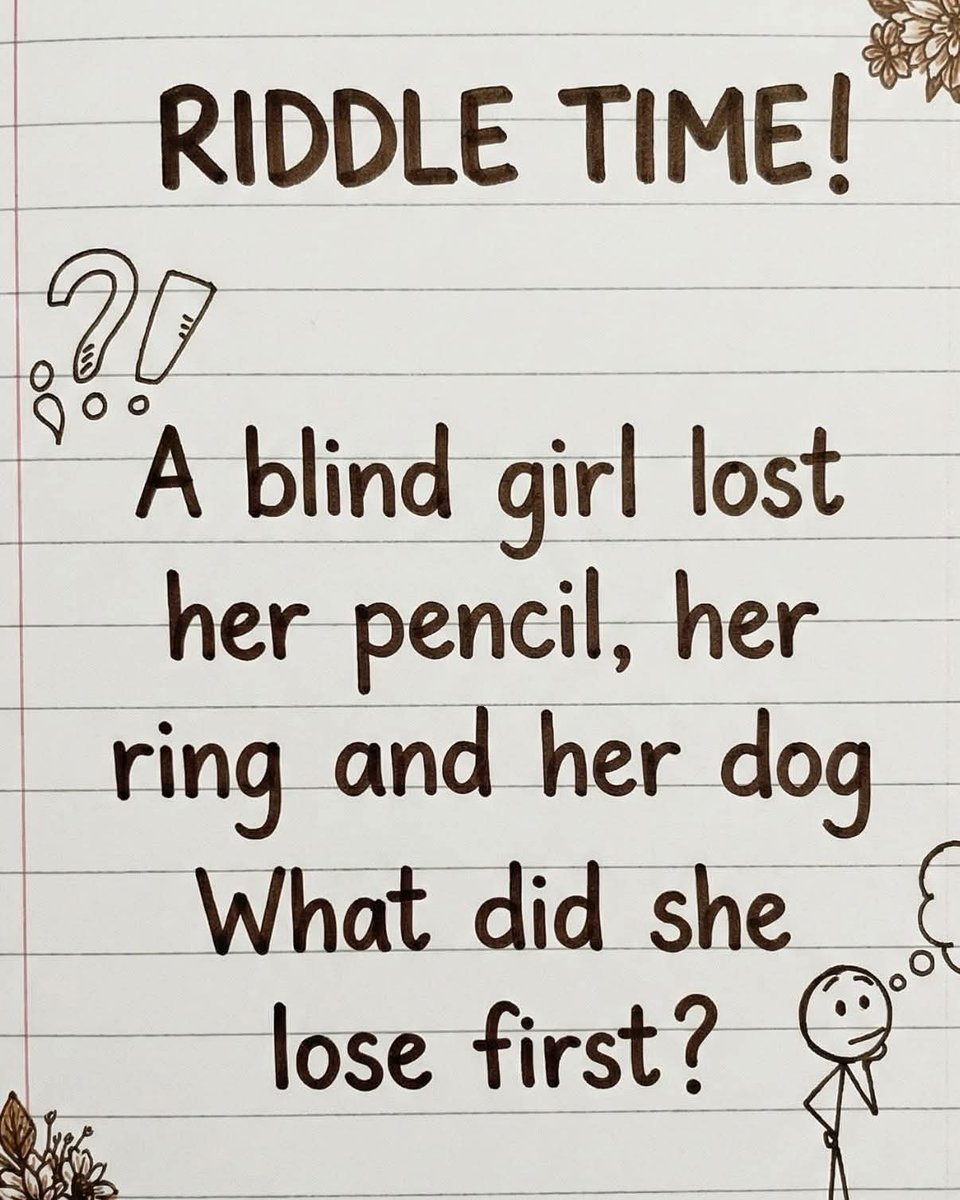 RIDDLE TIME!
?!
A blind girl lost
her pencil, her
ring and her dog
What did she
lose first?